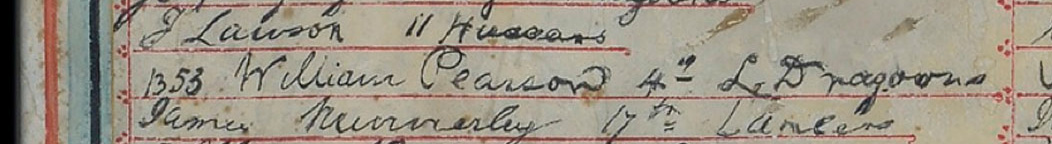 J Lawson 11 Hussars
1353 William Pearson 4th L. Dragoons
James Nunnerley 17th Lancers